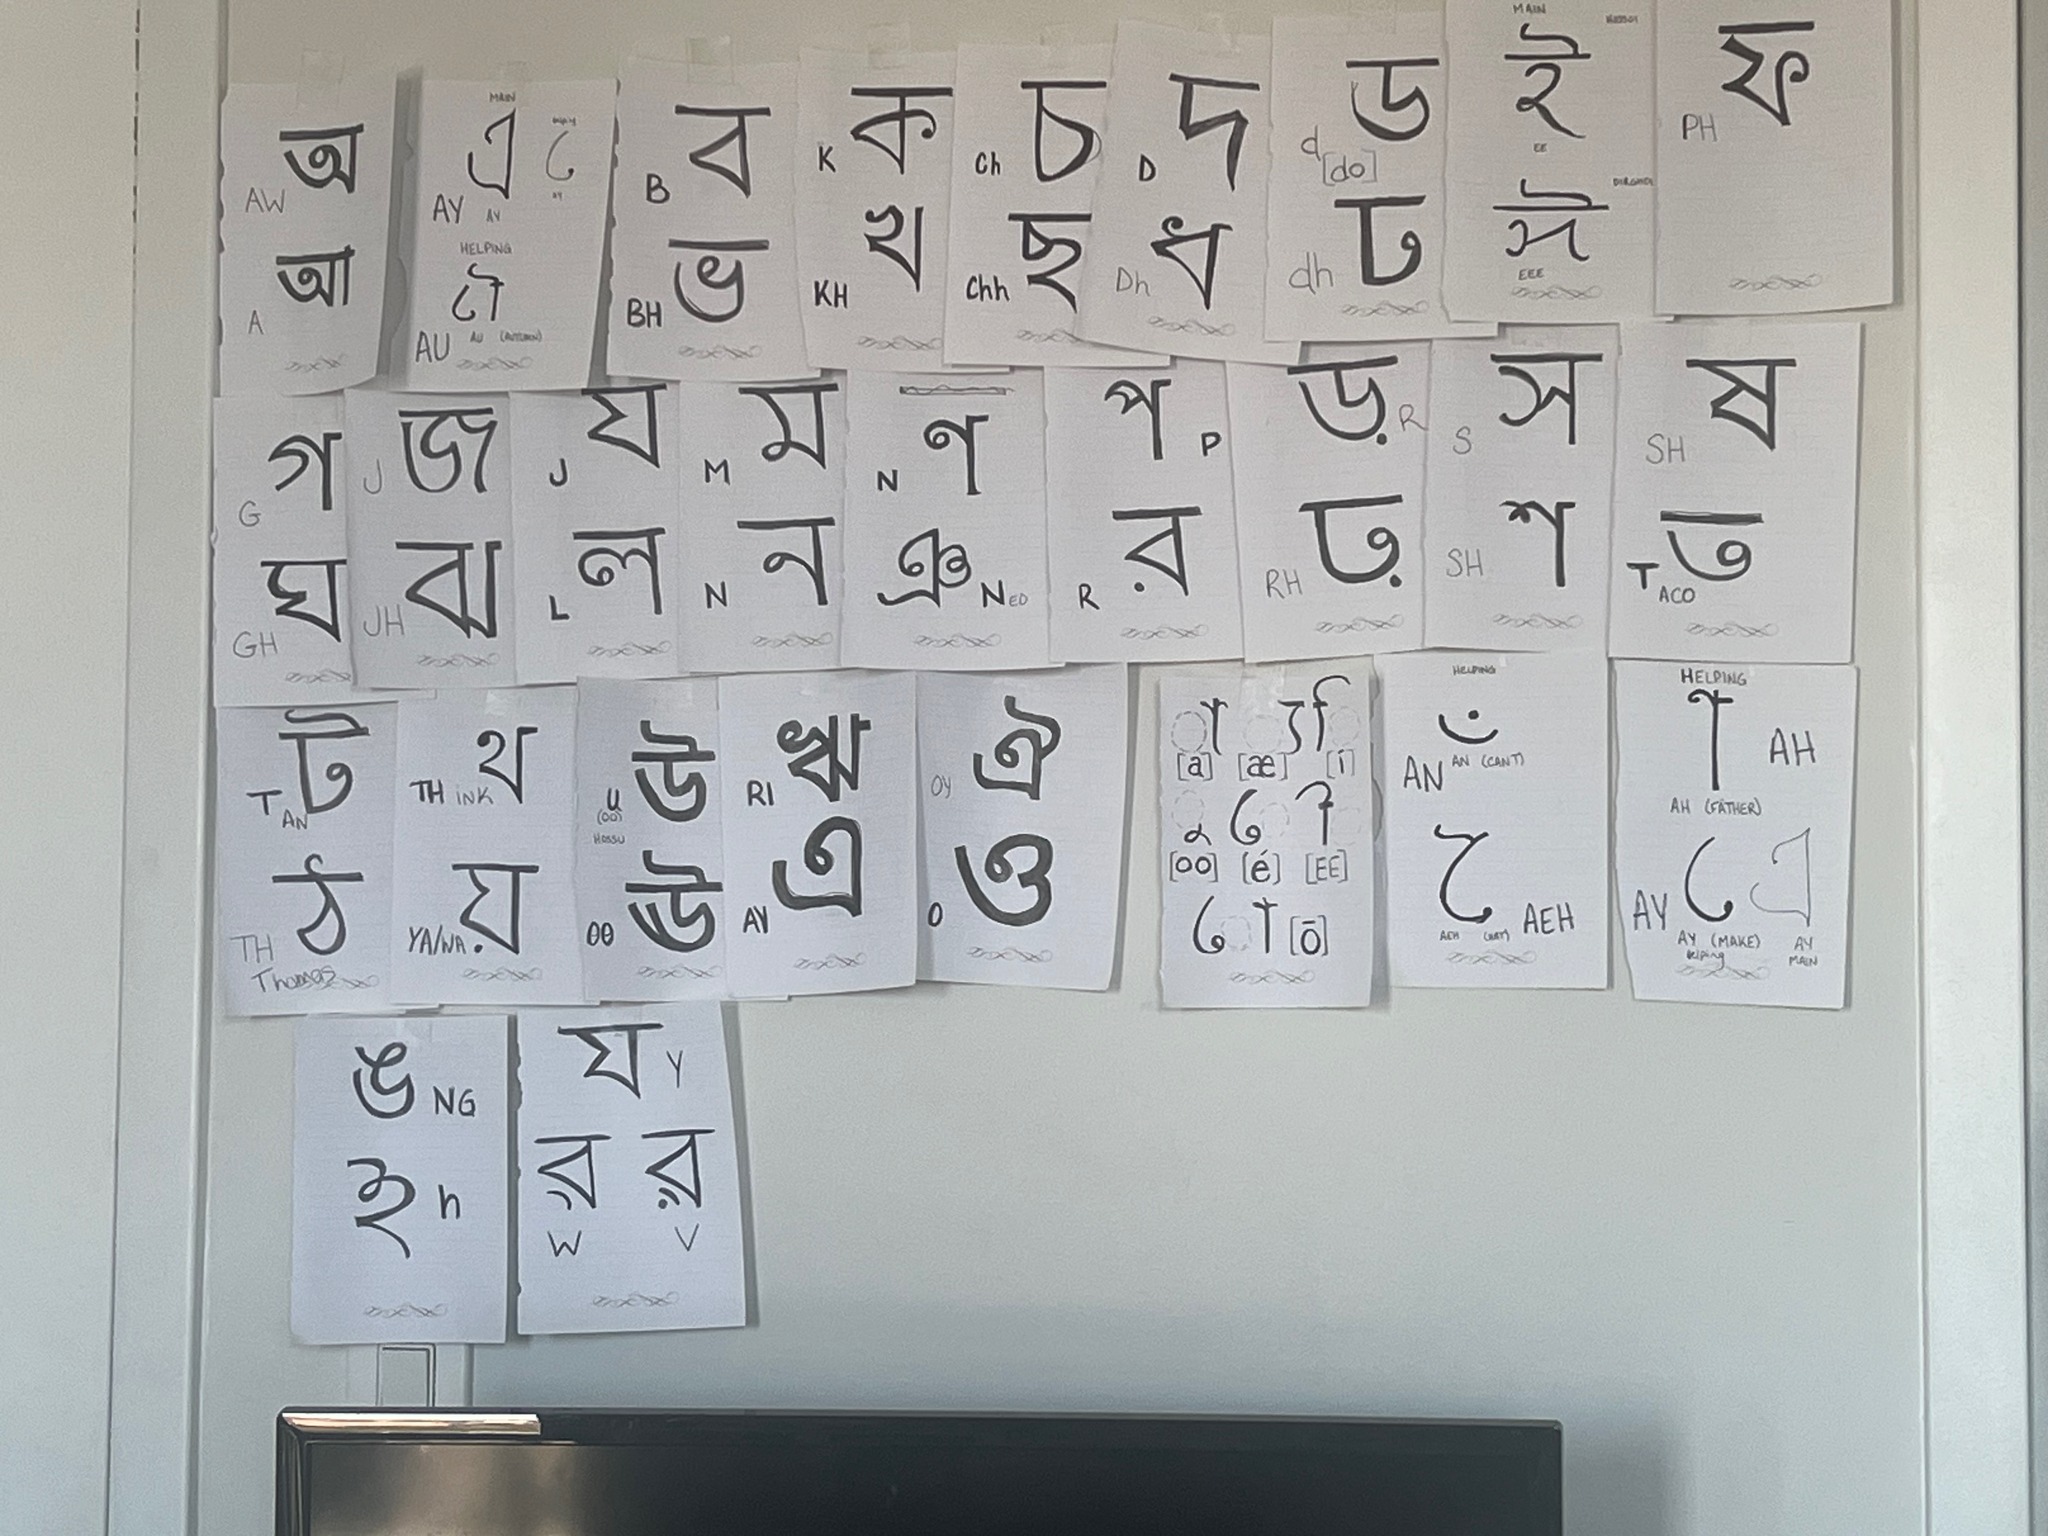 অ
AW
আ
A
MAIN
এ
ে
AY
AY
AY
HELPING
ৌ
AU
AU (AUTUMN)
ব
B
ভ
BH
ক
K
খ
KH
চ
Ch
ছ
Chh
দ
D
ধ
Dh
ড
d
[do]
ঢ
dh
MAIN
ই
EE
ঈ
EEE
ফ
PH
গ
G
ঘ
GH
জ
J
ঝ
JH
য
J
ল
L
ম
M
ন
N
ণ
N
ঞ
NEO
প
P
র
R
ড়
R
ঢ়
RH
স
S
শ
SH
ষ
SH
ত
TACO
ট
TAN
ঠ
TH
Thomas
থ
THINK
য়
YA/WA
উ
U
(OO)
HOSSU
ঊ
OO
ঋ
RI
এ
AY
ঐ
OY
ও
O
া ্য ি
[a] [æ] [i]
ু ে ী
[oo] [é] [EE]
ো [ō]
HELPING
ঁ
AN AN (CANT)
ৈ
AEH
AEH
HELPING
া
AH
AH (FATHER)
ে এ
AY
AY (MAKE)
helping
AY
MAIN
ঙ NG
হ h
য Y
ৱ
ৱ়
W V